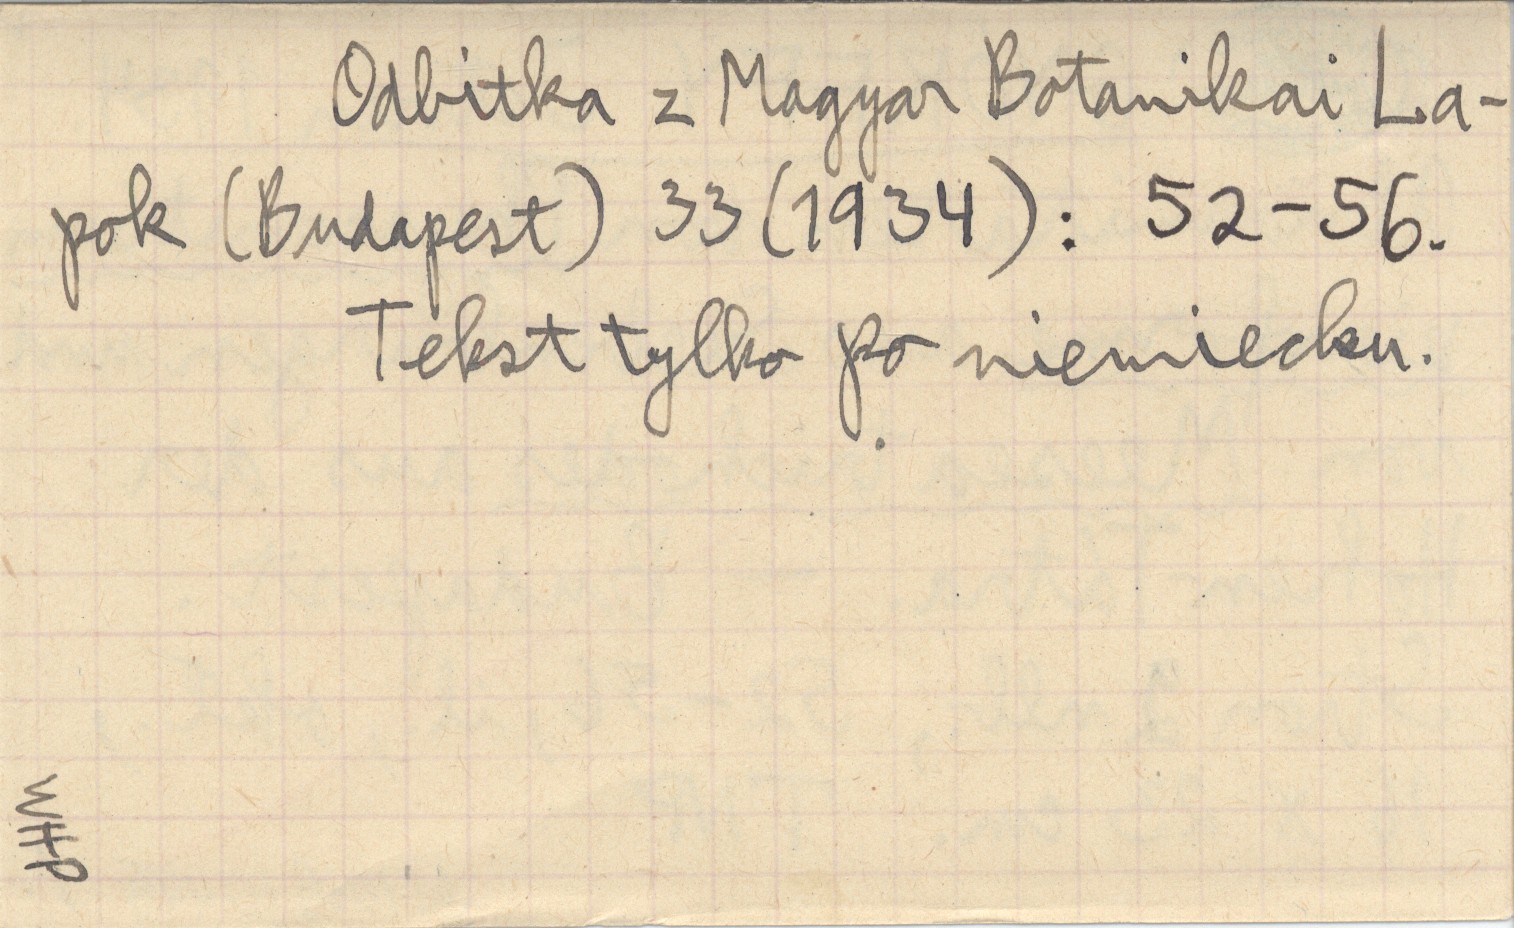 Odbitka z Magyar Botanikai La-
pok (Budapest) 33 (1934): 52-56.
Tekst tylko po niemiecku.
WHP